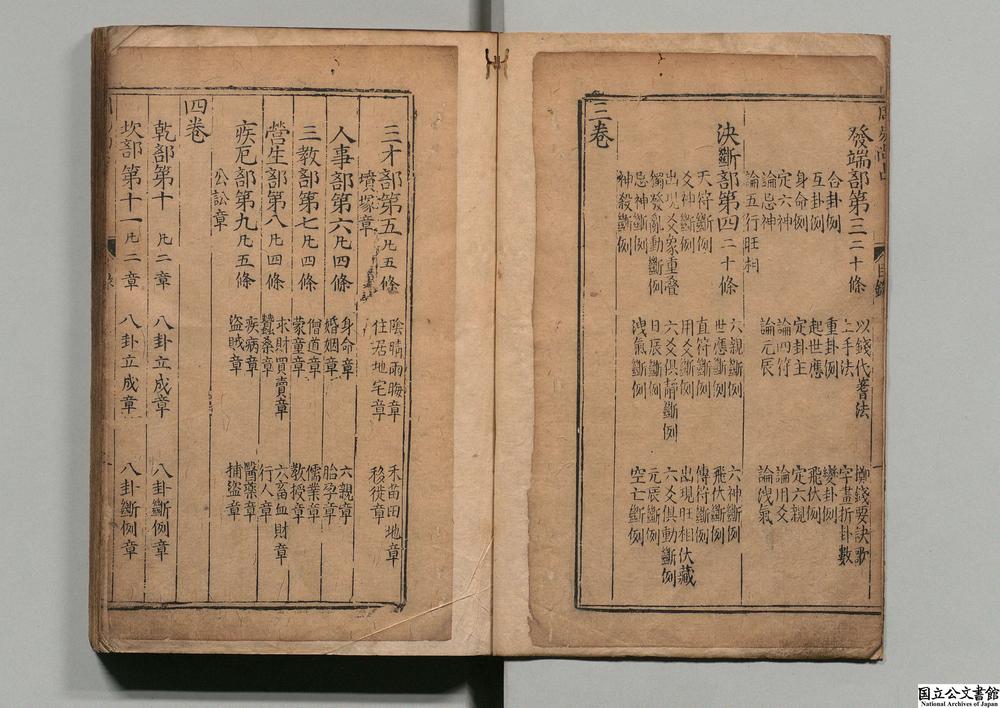 目錄
發端部第三 二十條 以錢代蓍法 擲錢要訣歌
合卦例 上手法 字畫折卦數
互卦例 重卦例 變卦例
身命例 起世應 飛伏例
定六神 定卦主 定六親
論忌神 論四符 論用爻
論五行旺相 論元辰 論洩氣
決斷部第四 二十條 六親斷例 六神斷例
天符斷例 世應斷例 飛伏斷例
爻神斷例 直符斷例 傳符斷例
出現爻象重疊 用爻斷例 出現旺相伏藏
獨發亂動斷例 六爻俱靜斷例 六爻俱動斷例
忌神斷例 日辰斷例 元辰斷例
神殺斷例 洩氣斷例 空亡斷例
三卷
三才部第五 凡五條 陰晴雨晦章 禾苗田地章
墳塚章 住居地宅章 移徙章
人事部第六 凡四條 身命章 六親章
婚姻章 胎孕章
三教部第七 凡四條 僧道章 儒業章
蒙童章 教授章
營生部第八 凡四條 求財買賣章 六畜血財章
蠶桑章 行人章
疾厄部第九 凡五條 疾病章 醫藥章
公訟章 盜賊章 捕盜章
四卷
乾部第十 凡二章 八卦立成章 八卦斷例章
坎部第十一 凡二章 八卦立成章 八卦斷例章
国立公文書館
National Archives of Japan